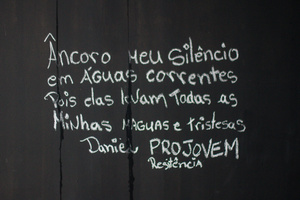 Âncoro meu Silêncio
em Águas correntes
Pois elas lavam Todas as
Minhas mÁguas e tristesas
Daniel PROJOVEM
Resistência